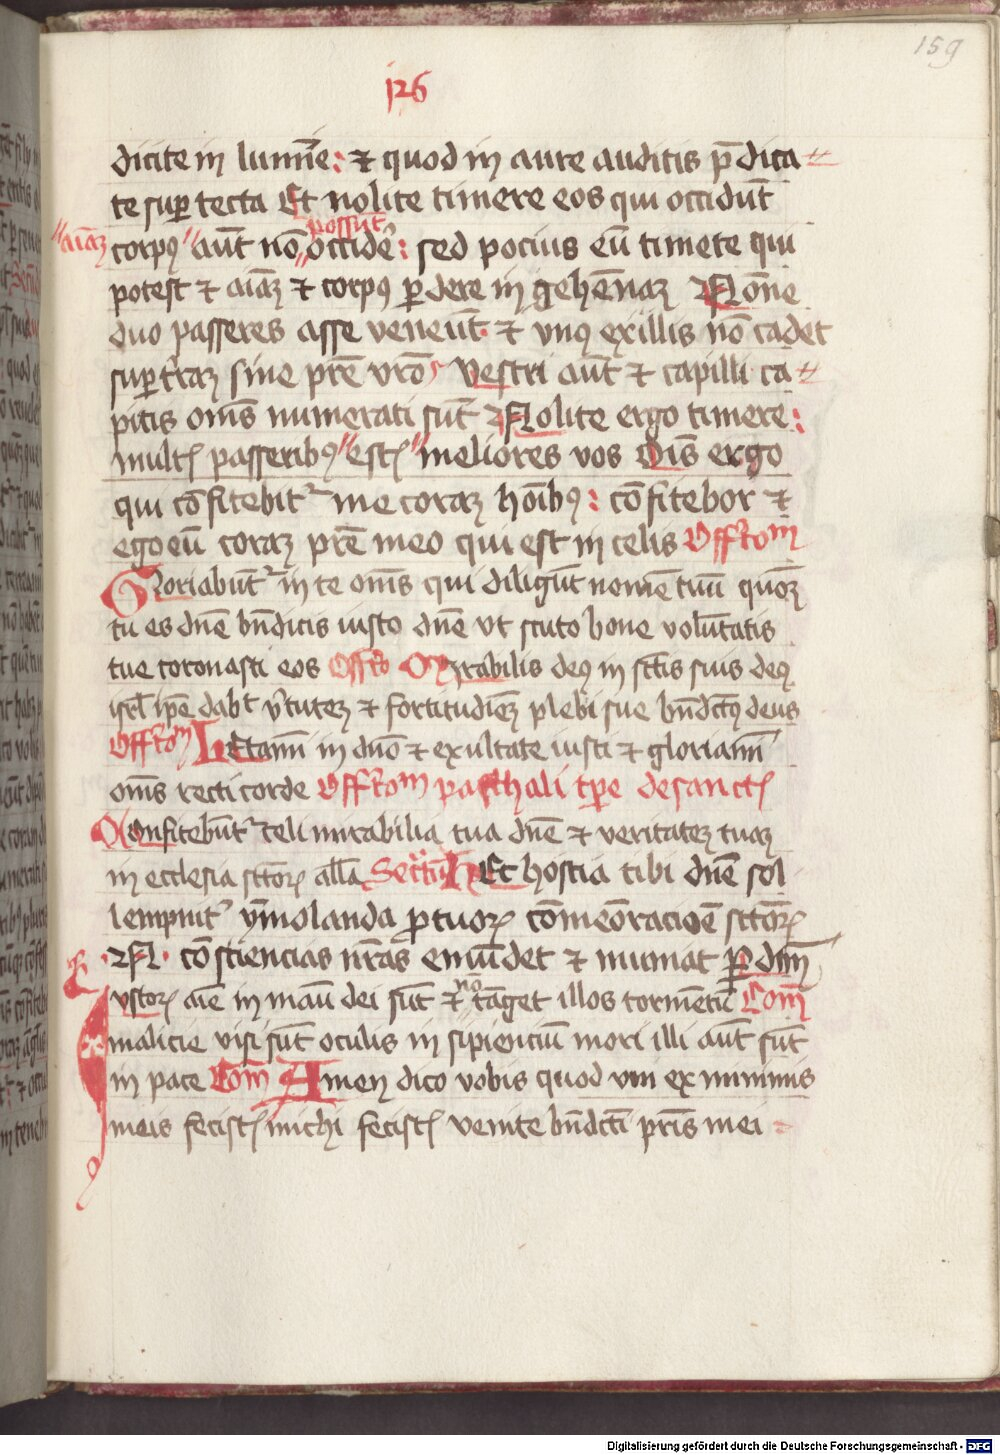 159
126
dicite in lumīe : ⁊ quod in aure auditis p̄ dica
te sup tecta Et nolite timere eos qui occidūt
aīaꝫ corpꝰ aūt nō possūt occidē : sed pocius eū timete qui
potest ⁊ aīaꝫ ⁊ corpꝰ ꝑdere in gehēnaꝫ Nōne
duo passeres asse veneūt ⁊ vnꝰ ex illis nō cadet
suꝑ t̄raꝫ sine pr̄e vr̄o Vestri aūt ⁊ capilli ca
pitis om̄s numerati sūt Nolite ergo timere :
multꝭ passeribꝰ estꝭ meliores vos Oīs ergo
qui cōfitebit᷑ me coraꝫ hoībꝰ : cōfitebor ⁊
ego eū coraꝫ pr̄e meo qui est in celis Offr̄om
Gloriabūt᷑ in te om̄s qui diligūt nomē tuū quoꝫ
tu es dn̄e bn̄dicis iusto dn̄e vt scuto bone volūtatis
tue coronasti eos Offr̄o Mirabilis deꝰ in sc̄tis suis deꝰ
isrl̄ ip̄e dabt v̓tuteꝫ ⁊ fortitudīeꝫ plebi sue bn̄dictꝰ deus
Offr̄om Letam̄i in dn̄o ⁊ exultate iusti ⁊ gloriam̄i
om̄s recti corde Offr̄om paschali tꝑe de sanctꝭ
Confitebūt᷑ celi mirabilia tua dn̄e ⁊ veritateꝫ tuaꝫ
in ecclesia sc̄toꝝ all̄a Secr̄tū Et hostia tibi dn̄e sol
lempnit᷑ ymolanda ꝑ tuoꝝ cōmeōracioē sc̄toꝝ
.N. cōsciencias nr̄as emūdet ⁊ muniat ꝑ dn̄m
Iustoꝝ aīe in manū dei sūt ⁊ nō tāget illos tormētū Com̄
malicie visi sūt oculis insipienciū mori illi aūt sūt
in pace Com̄ Amen dico vobis quod vni ex minimis
meis fecistꝭ michi fecistꝭ venite bn̄dcti pr̄is mei
Digitalisierung gefördert durch die Deutsche Forschungsgemeinschaft - DFG